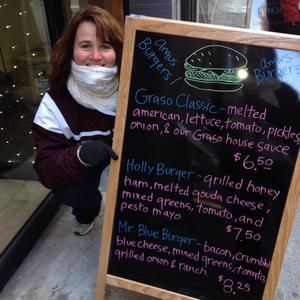 Angus Burgers!
Angus Burgers
Graso Classic - melted
american, lettuce, tomato, pickles,
onion, & our Graso house sauce
$6.50
Holly Burger - grilled honey
ham, melted gouda cheese,
mixed greens, tomato, and
pesto mayo
$7.50
Mr. Blue Burger - bacon, crumbled
blue cheese, mixed greens, tomato,
grilled onion & ranch
$8.25